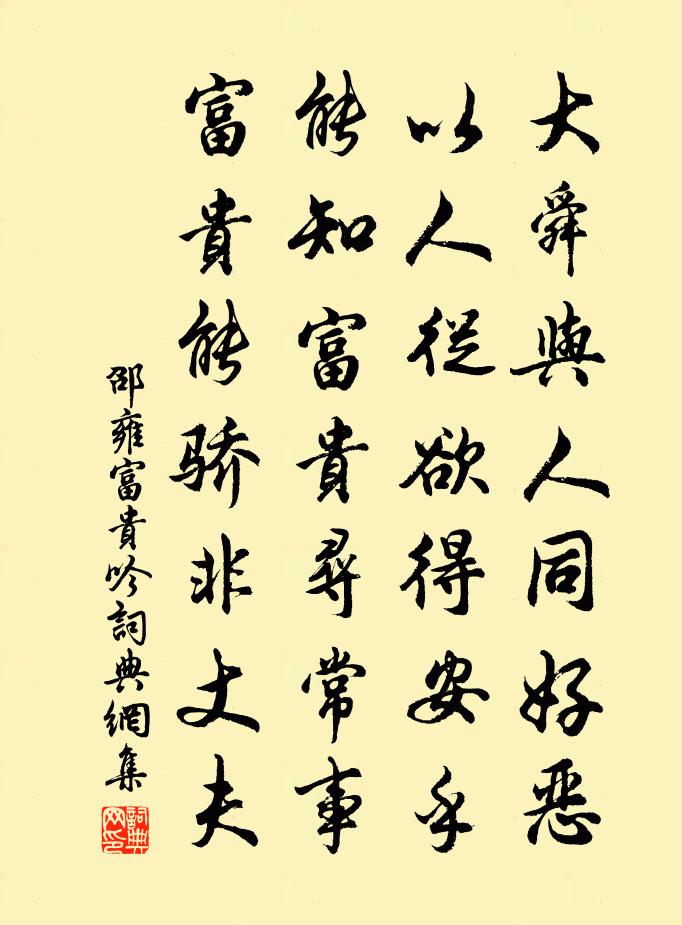 大舜與人同好惡
以人從欲得安乎
能知富貴尋常事
富貴能驕非丈夫
邵雍富貴吟詞典網集
詞典網印